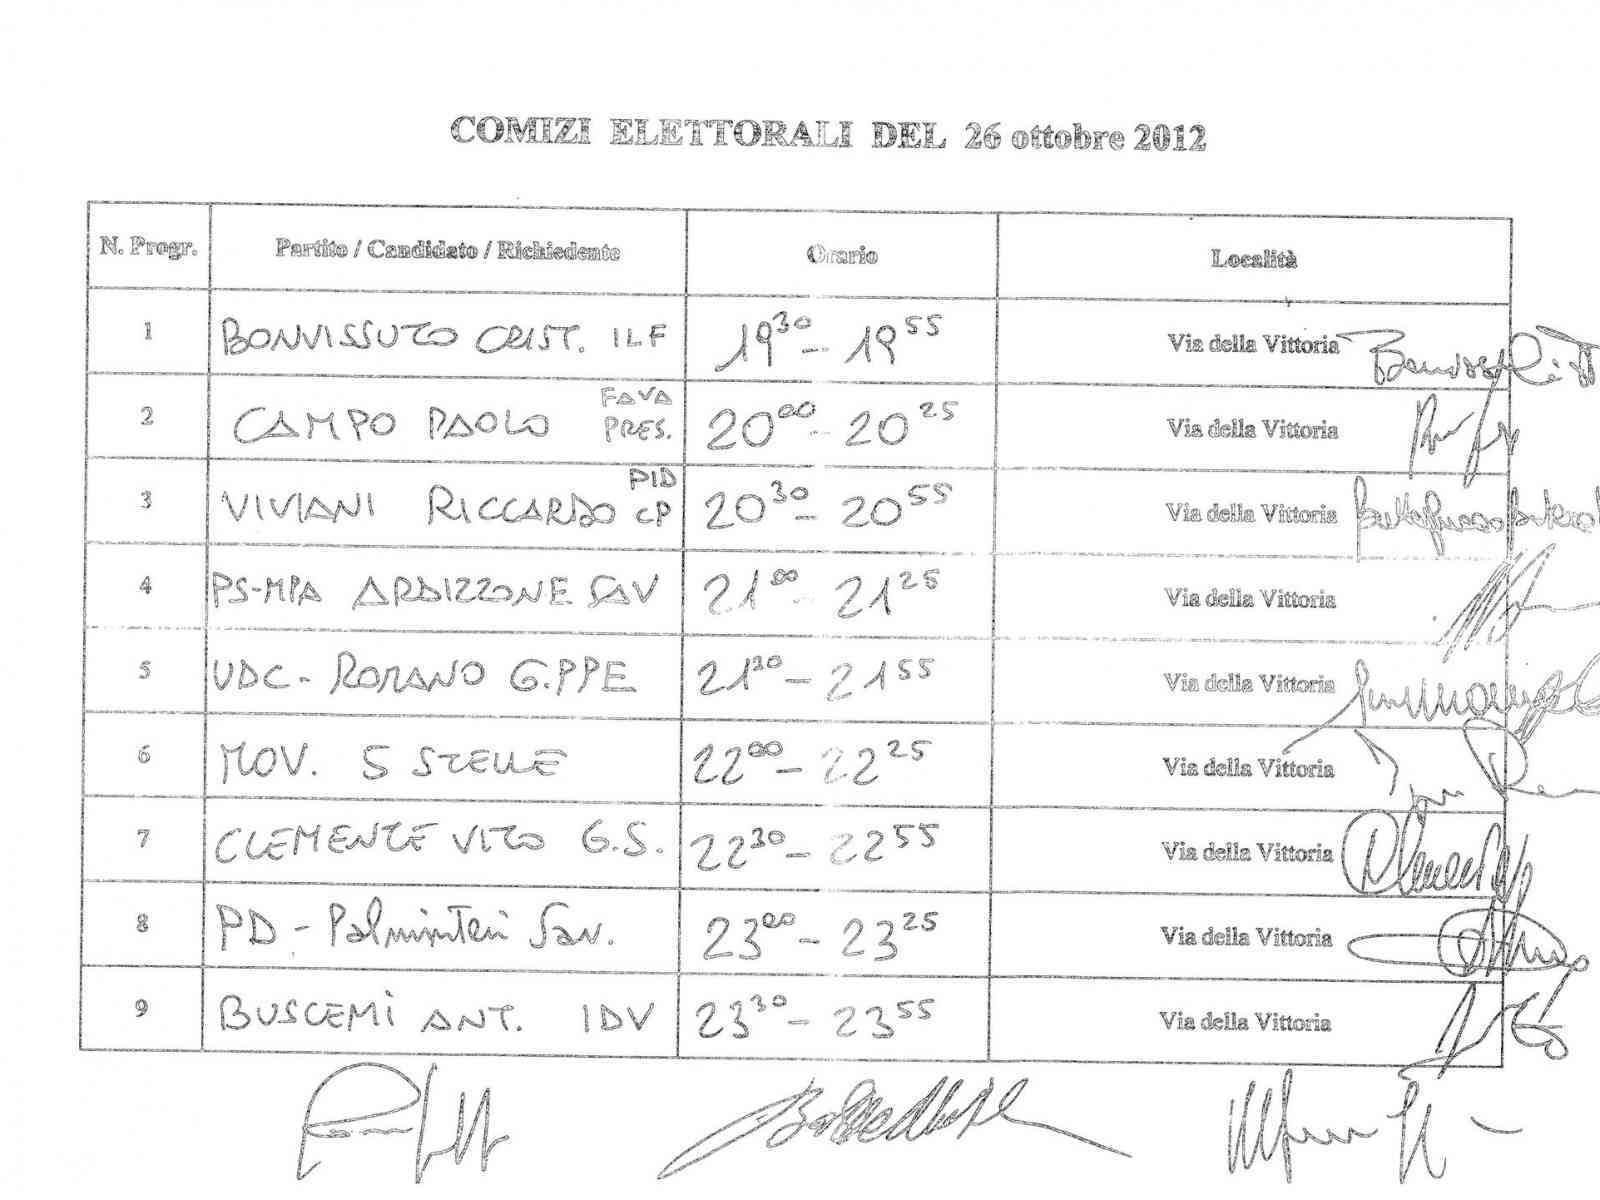 COMIZI ELETTORALI DEL 26 ottobre 2012
N. Progr. Partito / Candidato / Richiedente Orario Località
1 BONVISSUTO CRIST. ILF 19 30 - 19 55 Via della Vittoria
2 CAMPO PAOLO FAVA PRES. 20 00 - 20 25 Via della Vittoria
3 VIVIANI RICCARDO PID CP 20 30 - 20 55 Via della Vittoria
4 PS-MPA ARDIZZONE SAV 21 00 - 21 25 Via della Vittoria
5 UDC - ROMANO G.PPE 21 30 - 21 55 Via della Vittoria
6 MOV. 5 STELLE 22 00 - 22 25 Via della Vittoria
7 CLEMENTE VITO G.S. 22 30 - 22 55 Via della Vittoria
8 PD - Palminteri Sav. 23 00 - 23 25 Via della Vittoria
9 BUSCEMI ANT. IDV 23 30 - 23 55 Via della Vittoria